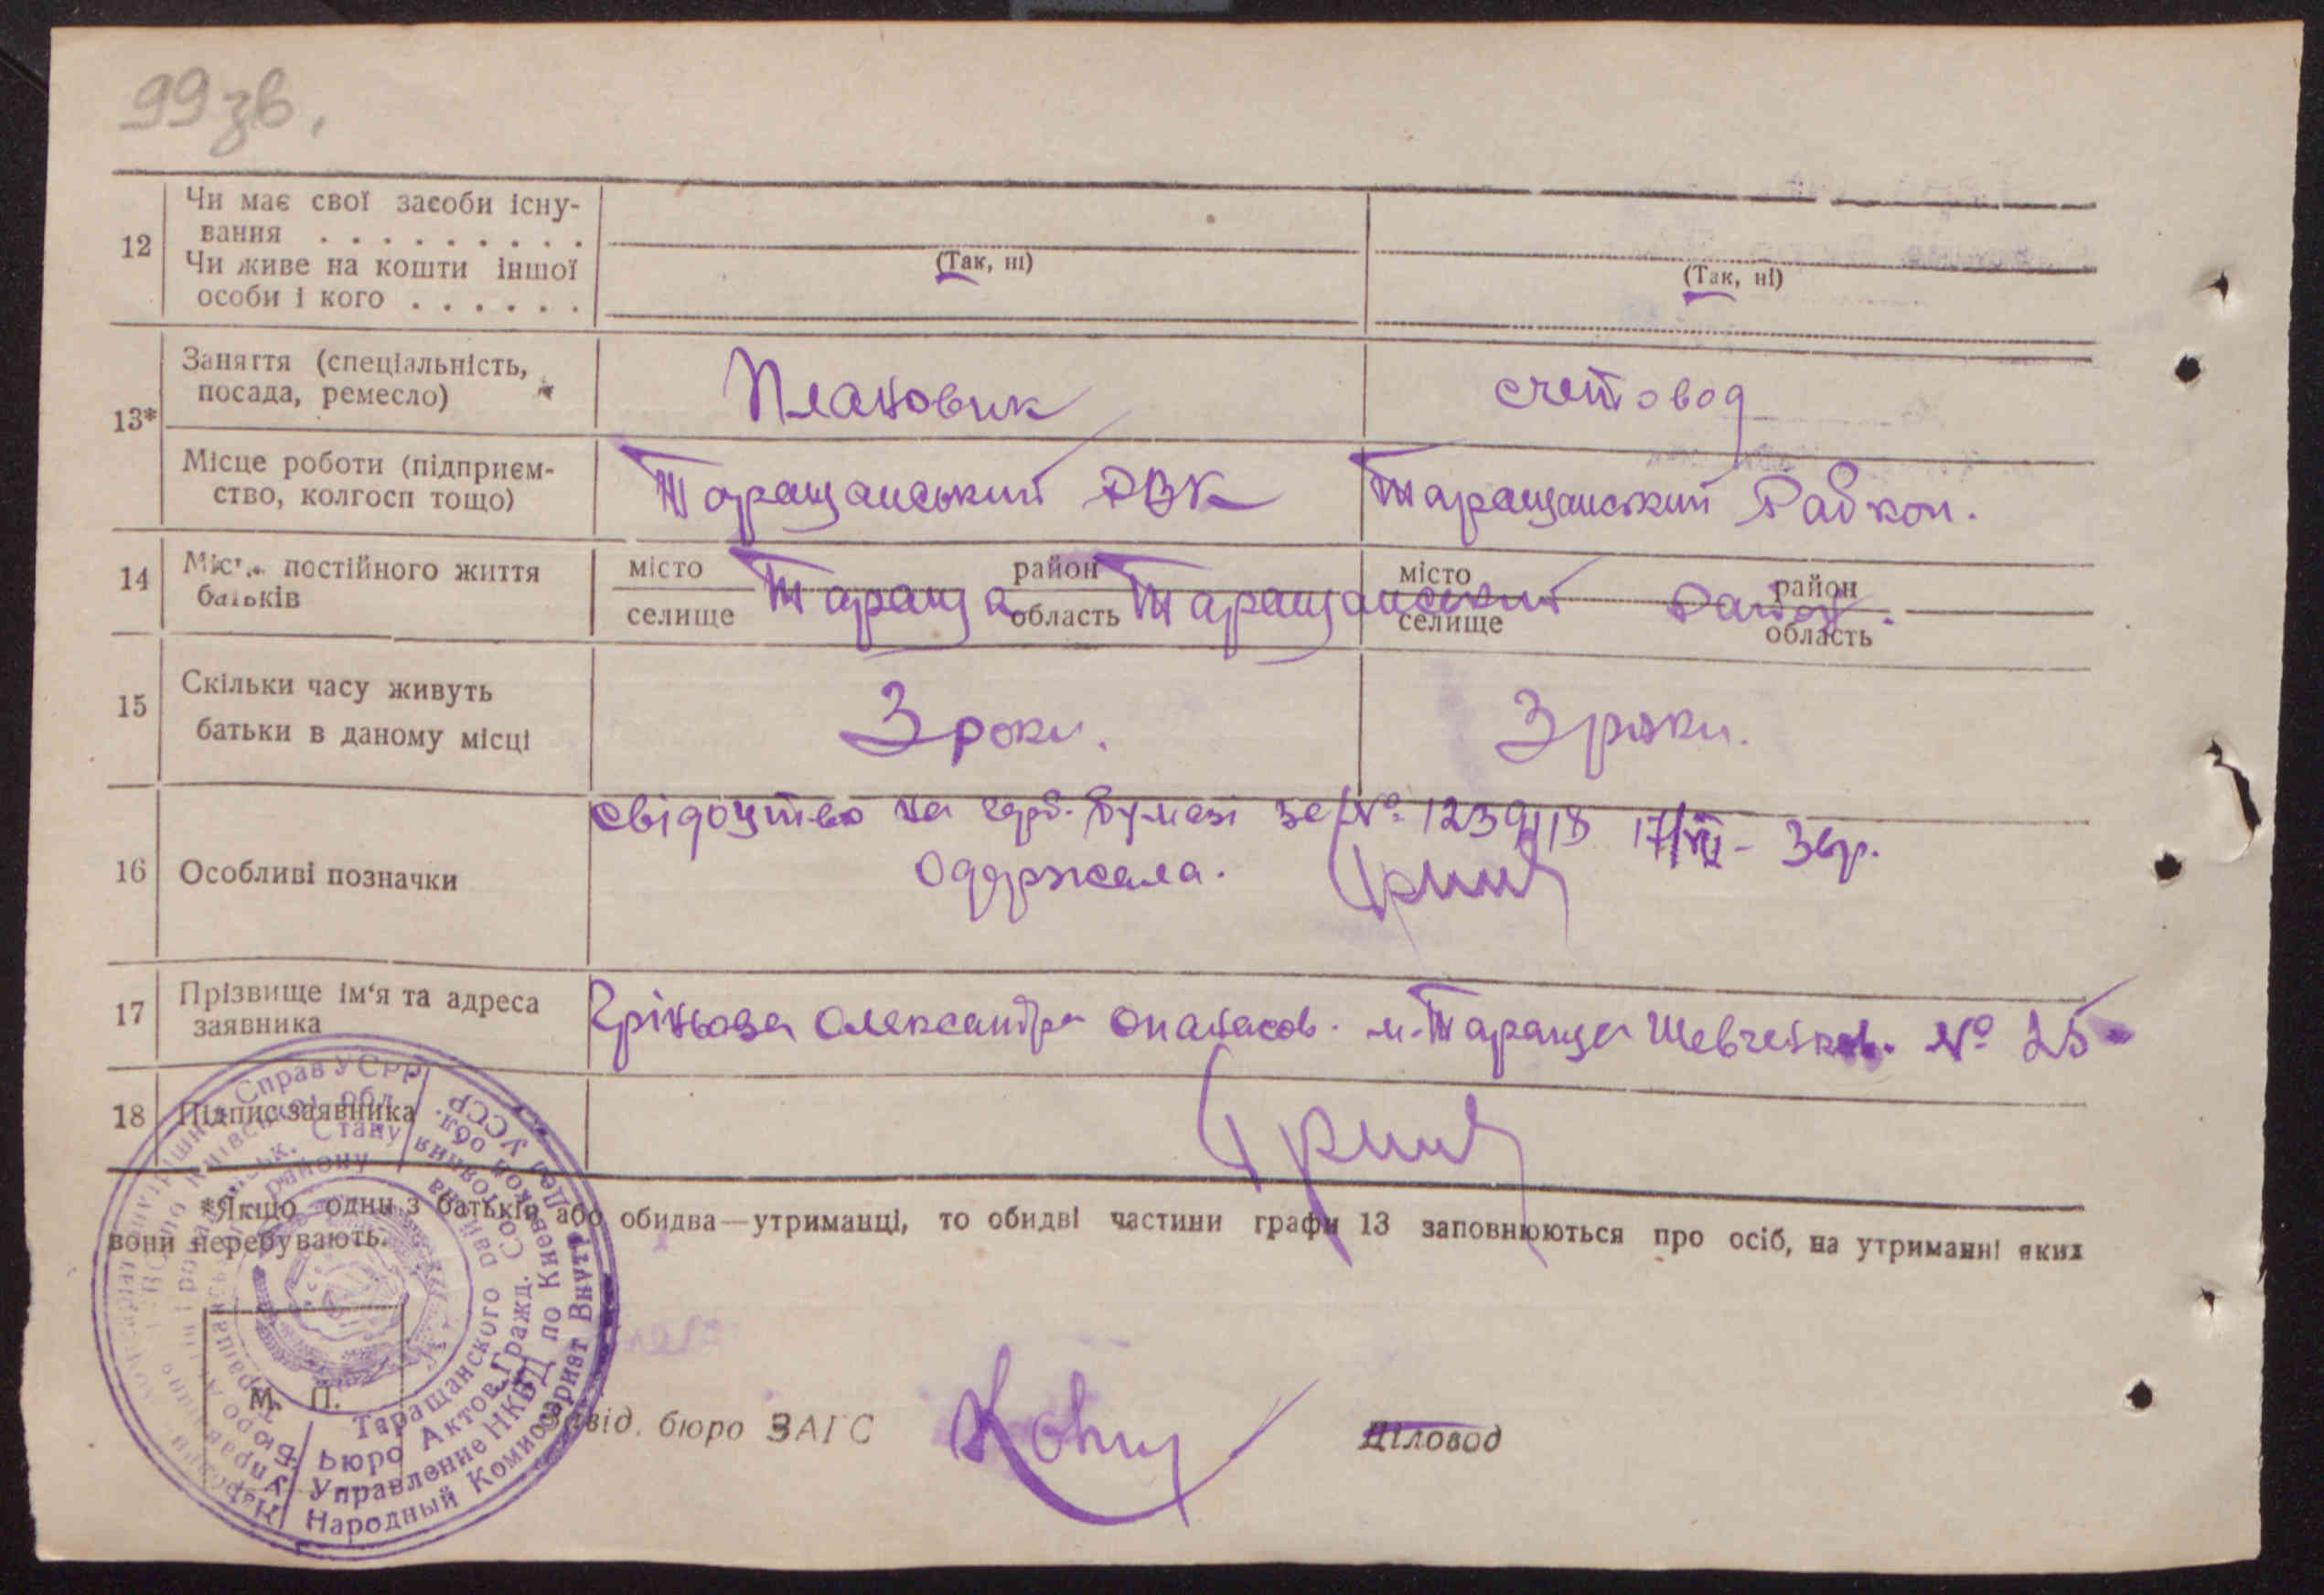 99 зв.
12
Чи має свої засоби існу-
вання . . . . . . . . .
Чи живе на кошти іншої
особи і кого . . . . . .
(Так, ні)
(Так, ні)
13*
Заняття (спеціальність,
посада, ремесло)
Плановик
счетовод
Місце роботи (підприєм-
ство, колгосп тощо)
Таращанський РВК
Таращанський Райкоп.
14
постійного життя
батьків
місто
селище
Тараща
район
область
Таращанський
місто
селище
район
область
15
Скільки часу живуть
батьки в даному місці
3 роки.
3 роки.
16
Особливі позначки
свідоцтво на герб. бумазі за № 1239118 17/VII - 36р.
Одержала.
17
Прізвище ім'я та адреса
заявника
Гріньова Олександра Опанасов. м. Тараща Шевченков. № 25
18
Підпис заявника
*Якщо один з батьків або обидва—утриманці, то обидві частини графи 13 заповнюються про осіб, на утриманні яких
вони перебувають.
М. П.
Завід. бюро ЗАГС
Діловод
Справ УСРР
Київськ. обл.
Стану
району
Народный Комиссариат Внутр. Дел УССР
Управление НКВД по Киевской обл.
Бюро Актов Гражд. Состояния
Таращанского района